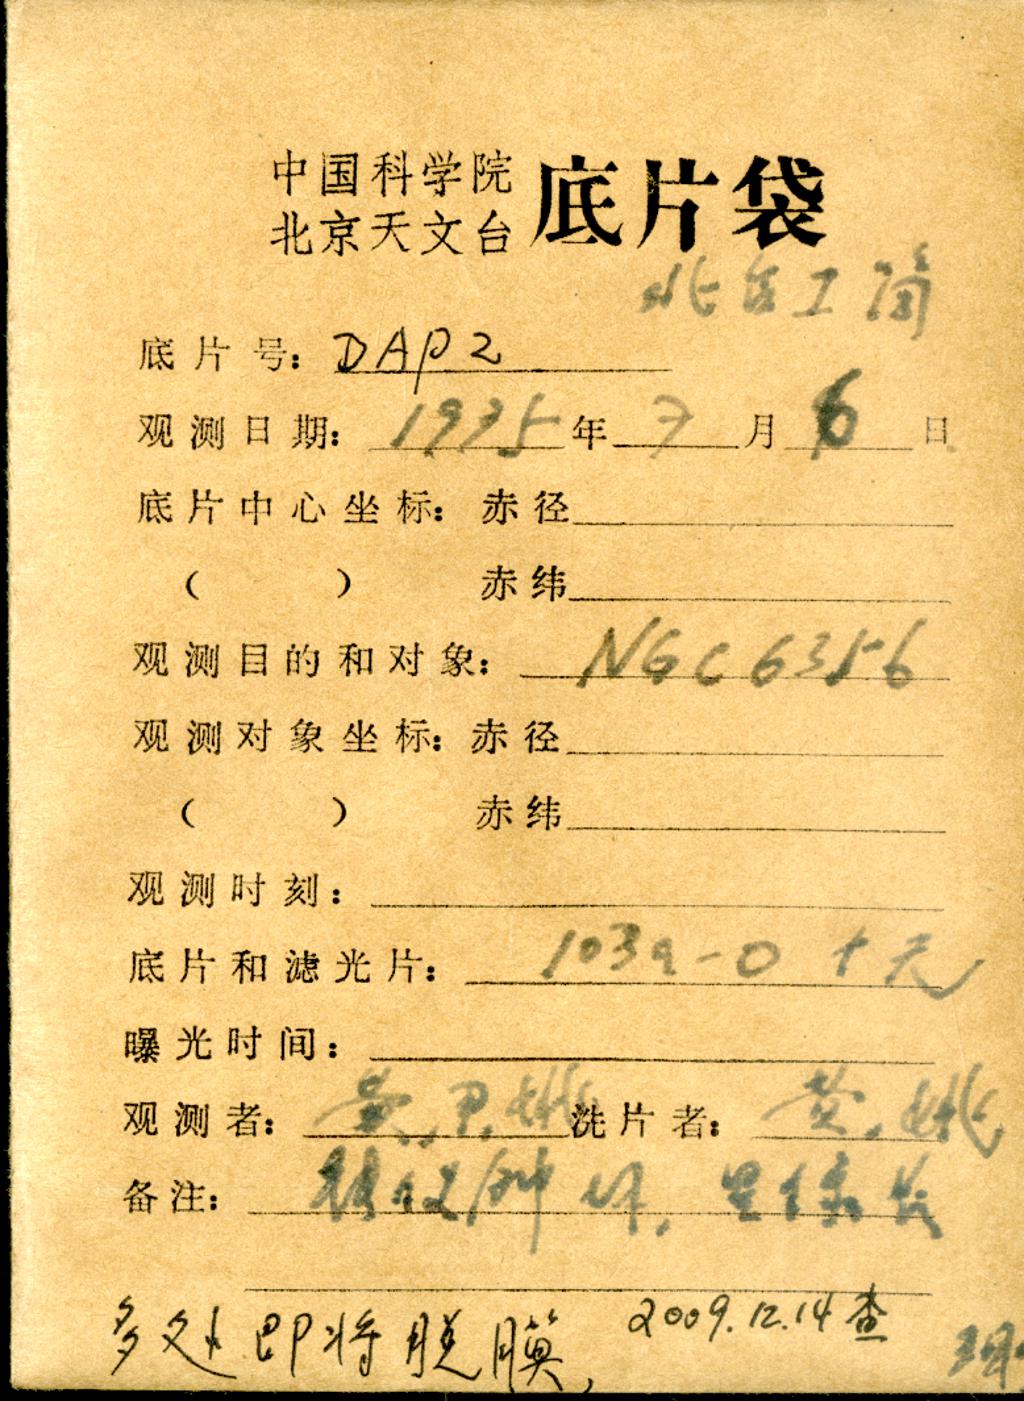 中国科学院
北京天文台
底片袋
底片号: DAP2
观测日期: 1975年7月6日
底片中心坐标: 赤径
( ) 赤纬
观测目的和对象: NGC6356
观测对象坐标: 赤径
( ) 赤纬
观测时刻:
底片和滤光片: 103a-O 十天
曝光时间:
观测者: 黄, 姚 洗片者: 黄, 姚
备注:
多处即将脱膜, 2009.12.14查